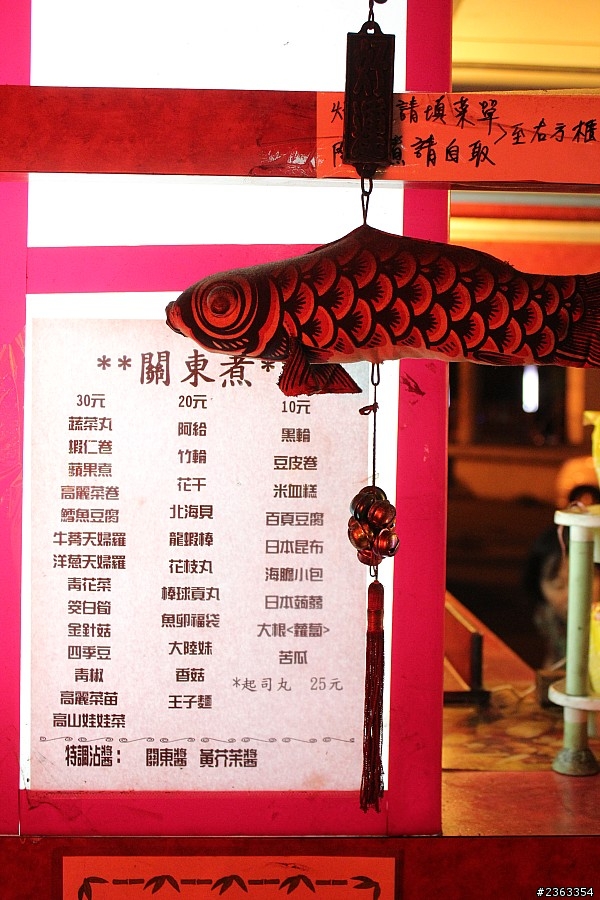 請填菜單
煮請自取
>至右方櫃
**關東煮*
30元
蔬菜丸
蝦仁卷
蘋果煮
高麗菜卷
鱈魚豆腐
牛蒡天婦羅
洋蔥天婦羅
青花菜
筊白筍
金針菇
四季豆
青椒
高麗菜苗
高山娃娃菜
20元
阿給
竹輪
花干
北海貝
龍蝦棒
花枝丸
棒球貢丸
魚卵福袋
大陸妹
香菇
王子麵
10元
黑輪
豆皮卷
米血糕
百頁豆腐
日本昆布
海膽小包
日本蒟蒻
大根<蘿蔔>
苦瓜
*起司丸 25元
特調沾醬： 關東醬 黃芥茉醬
#2363354